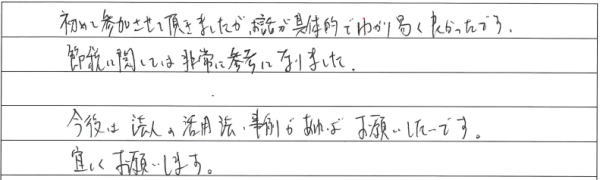 初めて参加させて頂きましたが、お話が具体的でわかり易く良かったです。
節税に関しては非常に参考になりました。
今後は法人の活用法、事例があればお願いしたいです。
宜しくお願いします。